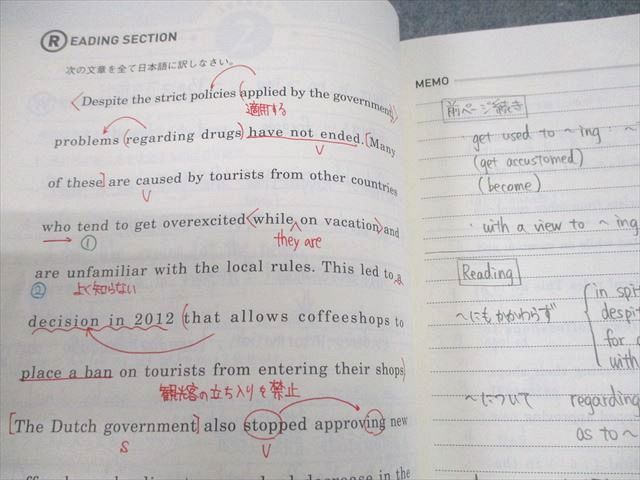 READING SECTION
次の文章を全て日本語に訳しなさい。
〈Despite the strict policies (applied by the government)〉
適用する
problems (regarding drugs) have not ended. [Many
V
of these] are caused by tourists from other countries
V
who tend to get overexcited 〈while ∧ on vacation〉 and
① they are
are unfamiliar with the local rules. This led to a
② よく知らない
decision in 2012 (that allows coffeeshops to
place a ban on tourists from entering their shops)
観光客の立ち入りを禁止
[The Dutch government] also stopped approving new
S V
decrease in the
MEMO
前ページ続き
・get used to ~ing ・~
(get accustomed)
(become)
・with a view to ~ing
Reading
~にもかかわらず
in spi
despi
for a
with
~について regarding
as to ~